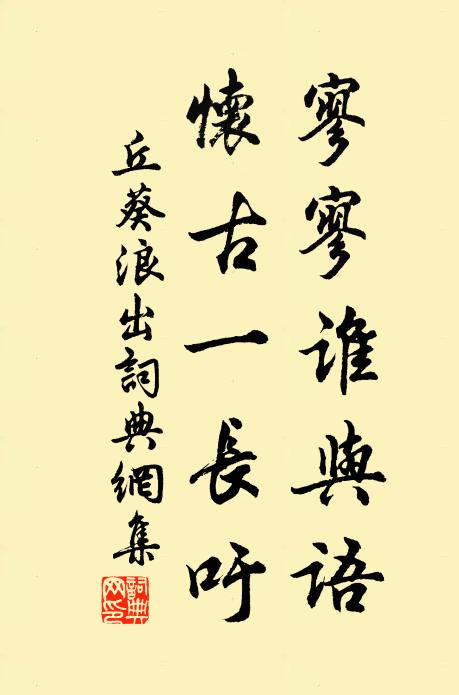 寥寥誰與語
懷古一長吁
丘葵浪出詞典網集
詞典網印